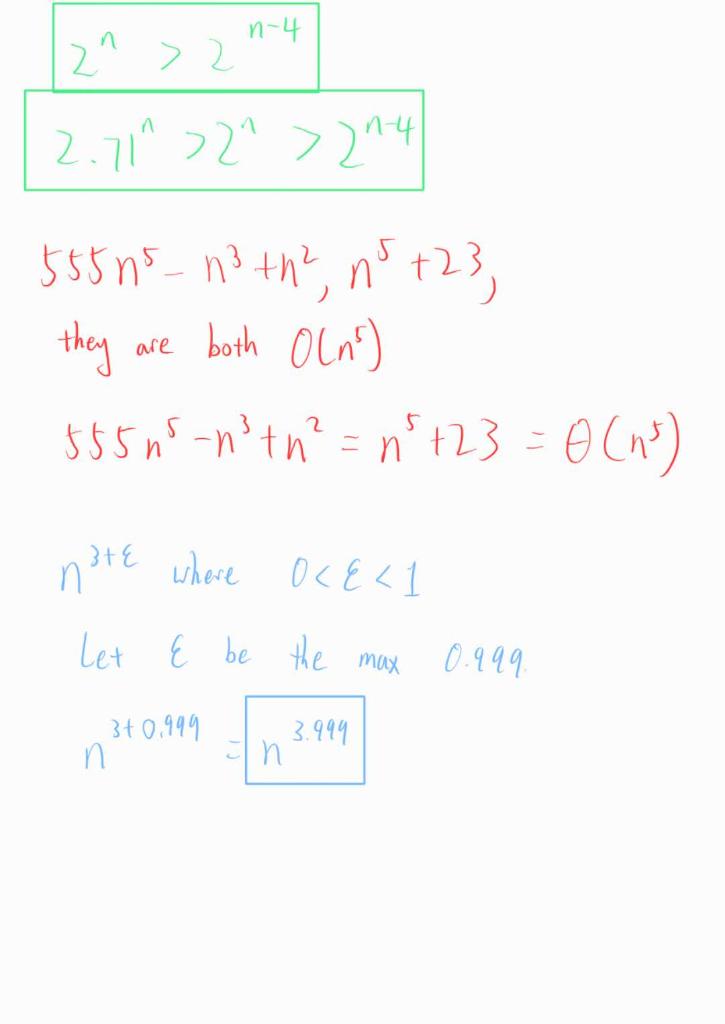 2ⁿ > 2ⁿ⁻⁴
2.71ⁿ > 2ⁿ > 2ⁿ⁻⁴
555n⁵ - n³ + n², n⁵ + 23,
they are both O(n⁵)
555n⁵ - n³ + n² = n⁵ + 23 = θ(n⁵)
n^(3+ε) where 0 < ε < 1
Let ε be the max 0.999.
n^(3+0.999) = n^(3.999)